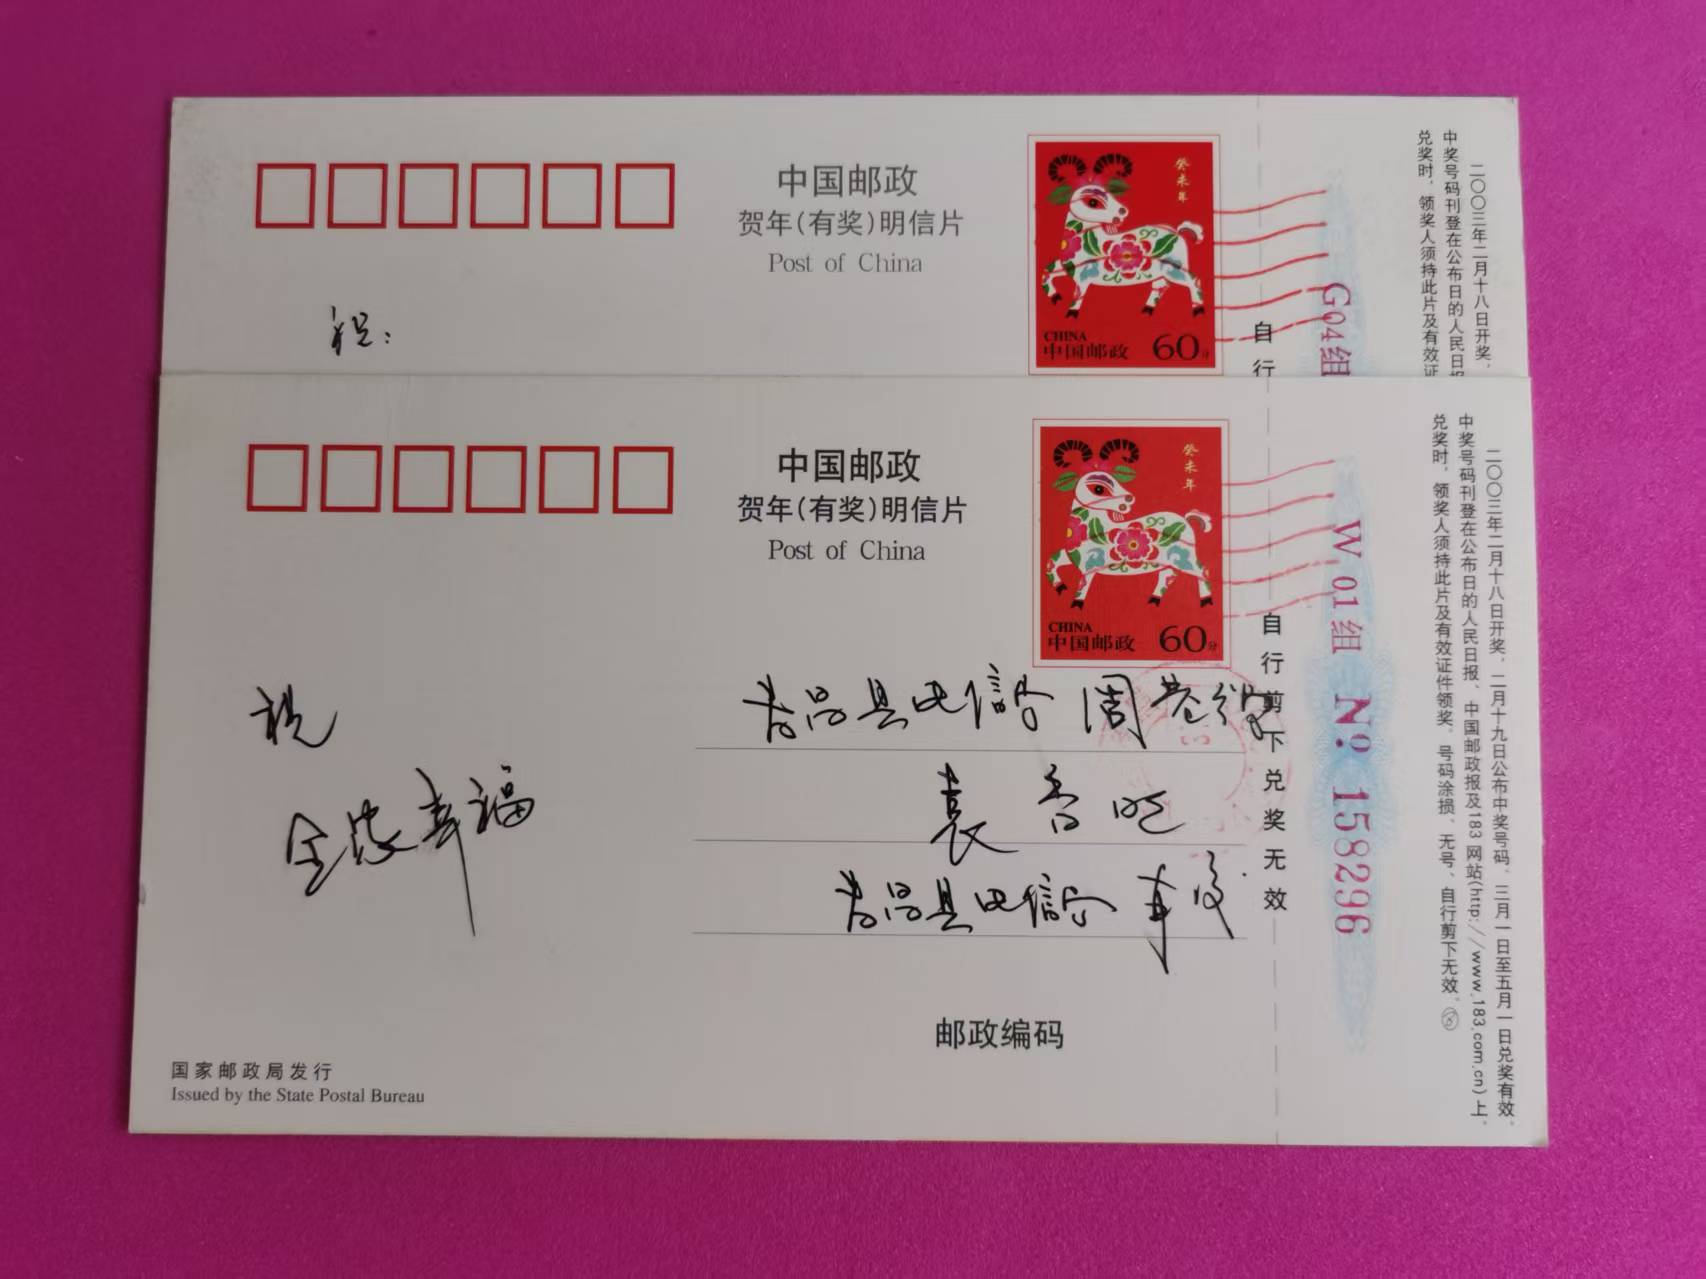 中国邮政
贺年(有奖)明信片
Post of China
癸未年
CHINA
中国邮政 60分
祝:
自行
G04组
二〇〇三年二月十八日开奖,
中奖号码刊登在公布日的人民日报
兑奖时,领奖人须持此片及有效证
中国邮政
贺年(有奖)明信片
Post of China
癸未年
CHINA
中国邮政 60分
祝
全家幸福
县电信
袁
县电信
邮政编码
国家邮政局发行
Issued by the State Postal Bureau
自行剪下兑奖无效
W 01组 No: 158296
二〇〇三年二月十八日开奖,二月十九日公布中奖号码,三月一日至五月一日兑奖有效。
中奖号码刊登在公布日的人民日报、中国邮政报及183网站(http://www.183.com.cn)上。
兑奖时,领奖人须持此片及有效证件领奖,号码涂损、无号、自行剪下无效。